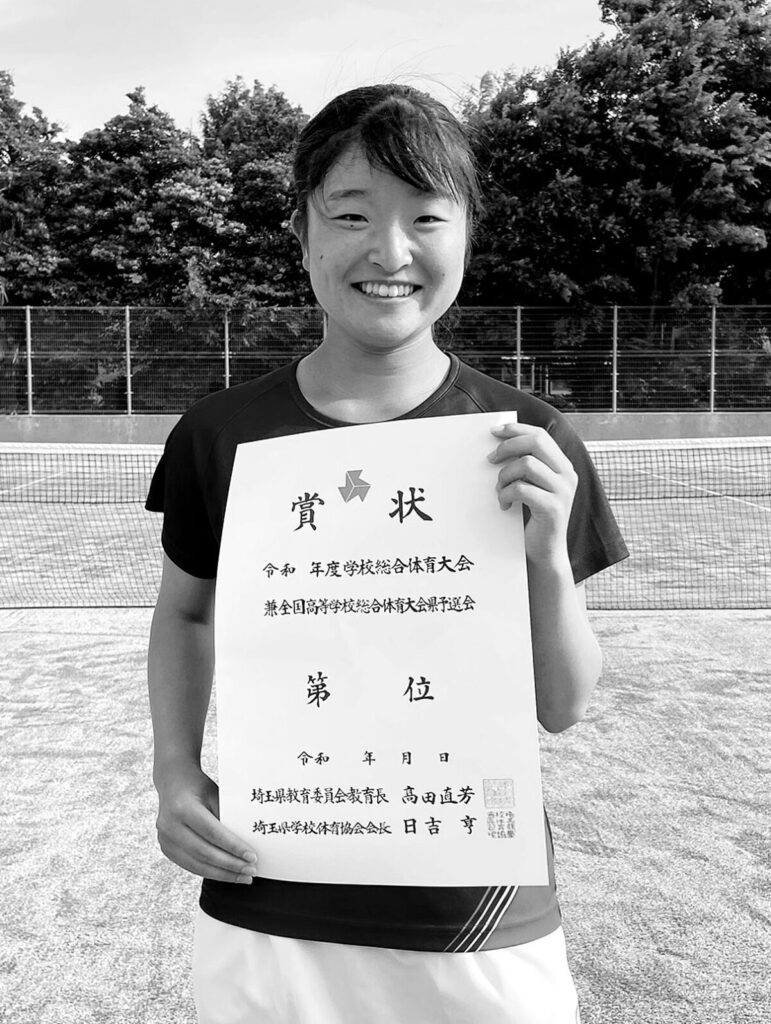 賞 状
令和 年度学校総合体育大会
兼全国高等学校総合体育大会県予選会
第 位
令和 年 月 日
埼玉県教育委員会教育長 高田直芳
埼玉県学校体育協会会長 日吉 亨